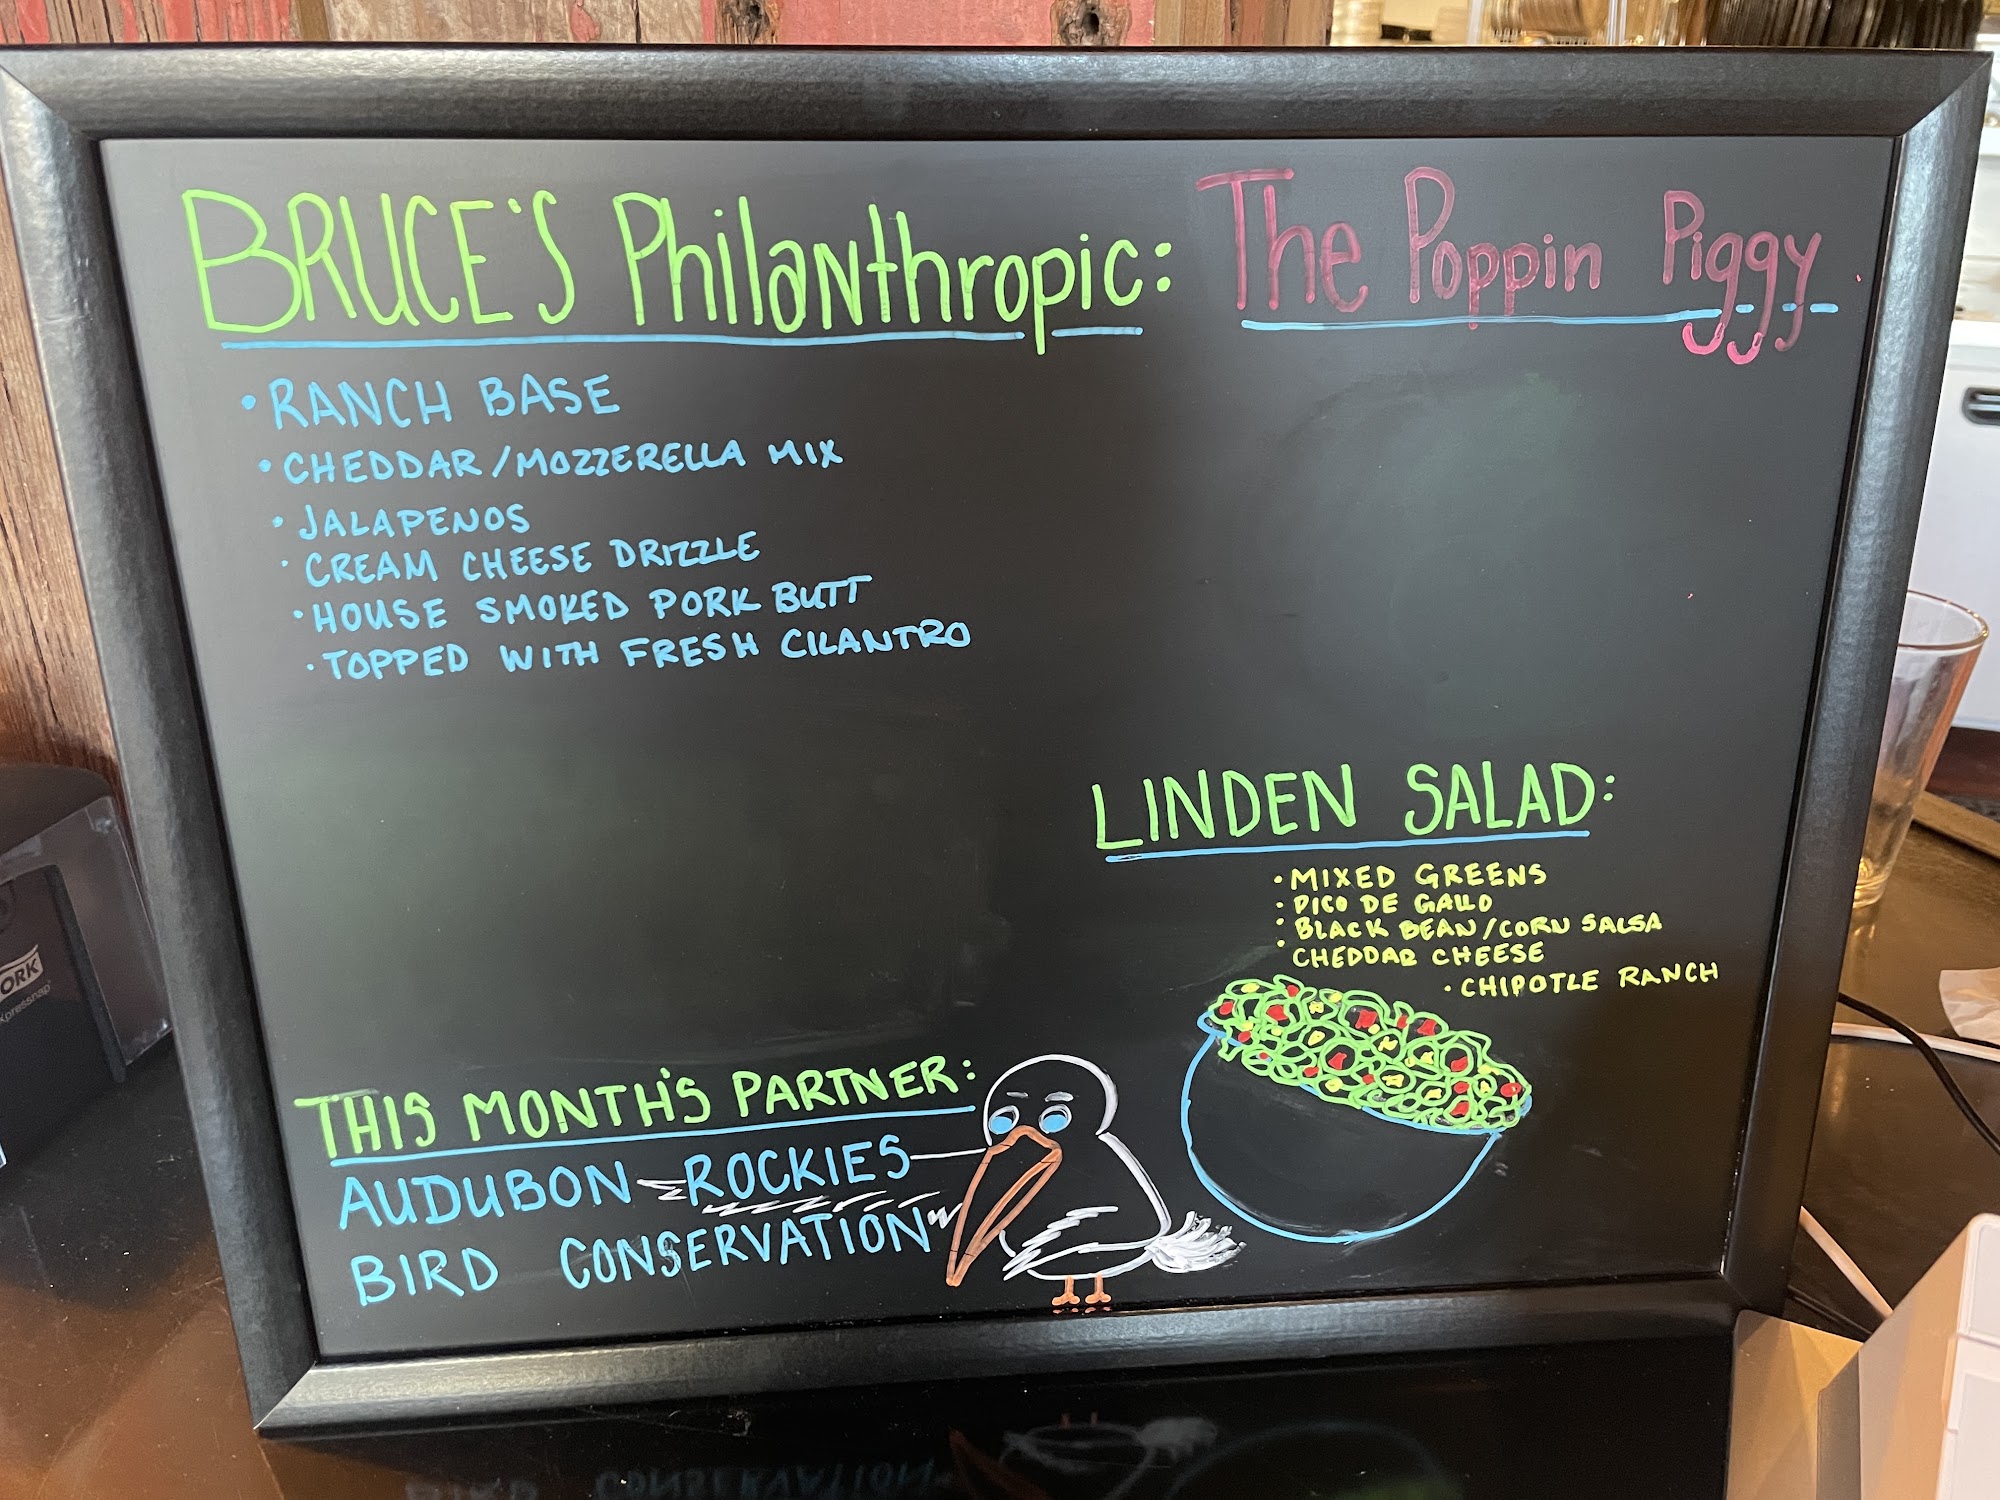 BRUCE'S Philanthropic: The Poppin Piggy
• RANCH BASE
• CHEDDAR/MOZZERELLA MIX
• JALAPENOS
• CREAM CHEESE DRIZZLE
• HOUSE SMOKED PORK BUTT
• TOPPED WITH FRESH CILANTRO
LINDEN SALAD:
• MIXED GREENS
• PICO DE GALLO
• BLACK BEAN/CORN SALSA
• CHEDDAR CHEESE
• CHIPOTLE RANCH
THIS MONTH'S PARTNER:
AUDUBON ROCKIES
BIRD CONSERVATION
ORK
xpressnap